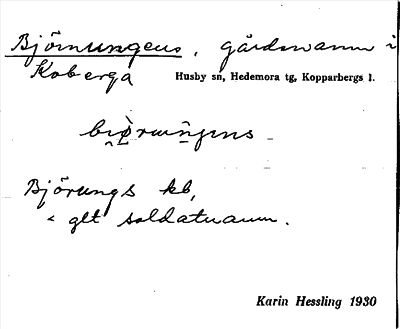 Björnungens, gårdsnamn i
Koberga Husby sn, Hedemora tg, Kopparbergs l.
Björungs kb,
glt soldatnamn.
Karin Hessling 1930